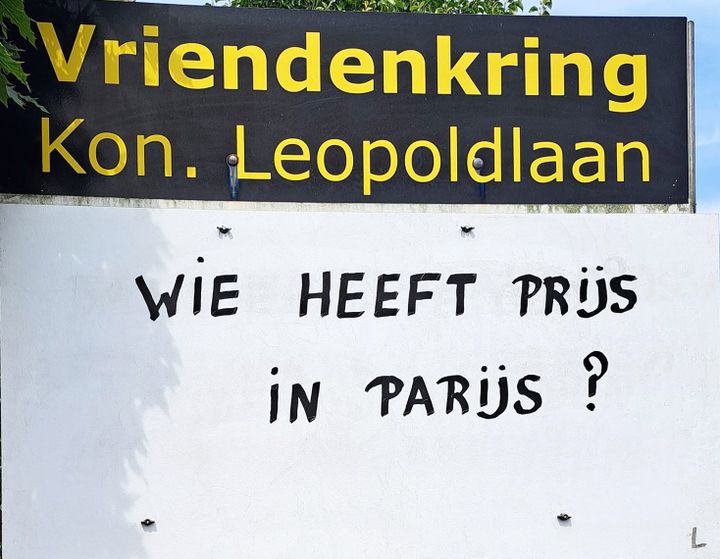 Vriendenkring
Kon. Leopoldlaan
WIE HEEFT PRIJS
IN PARIJS ?
L